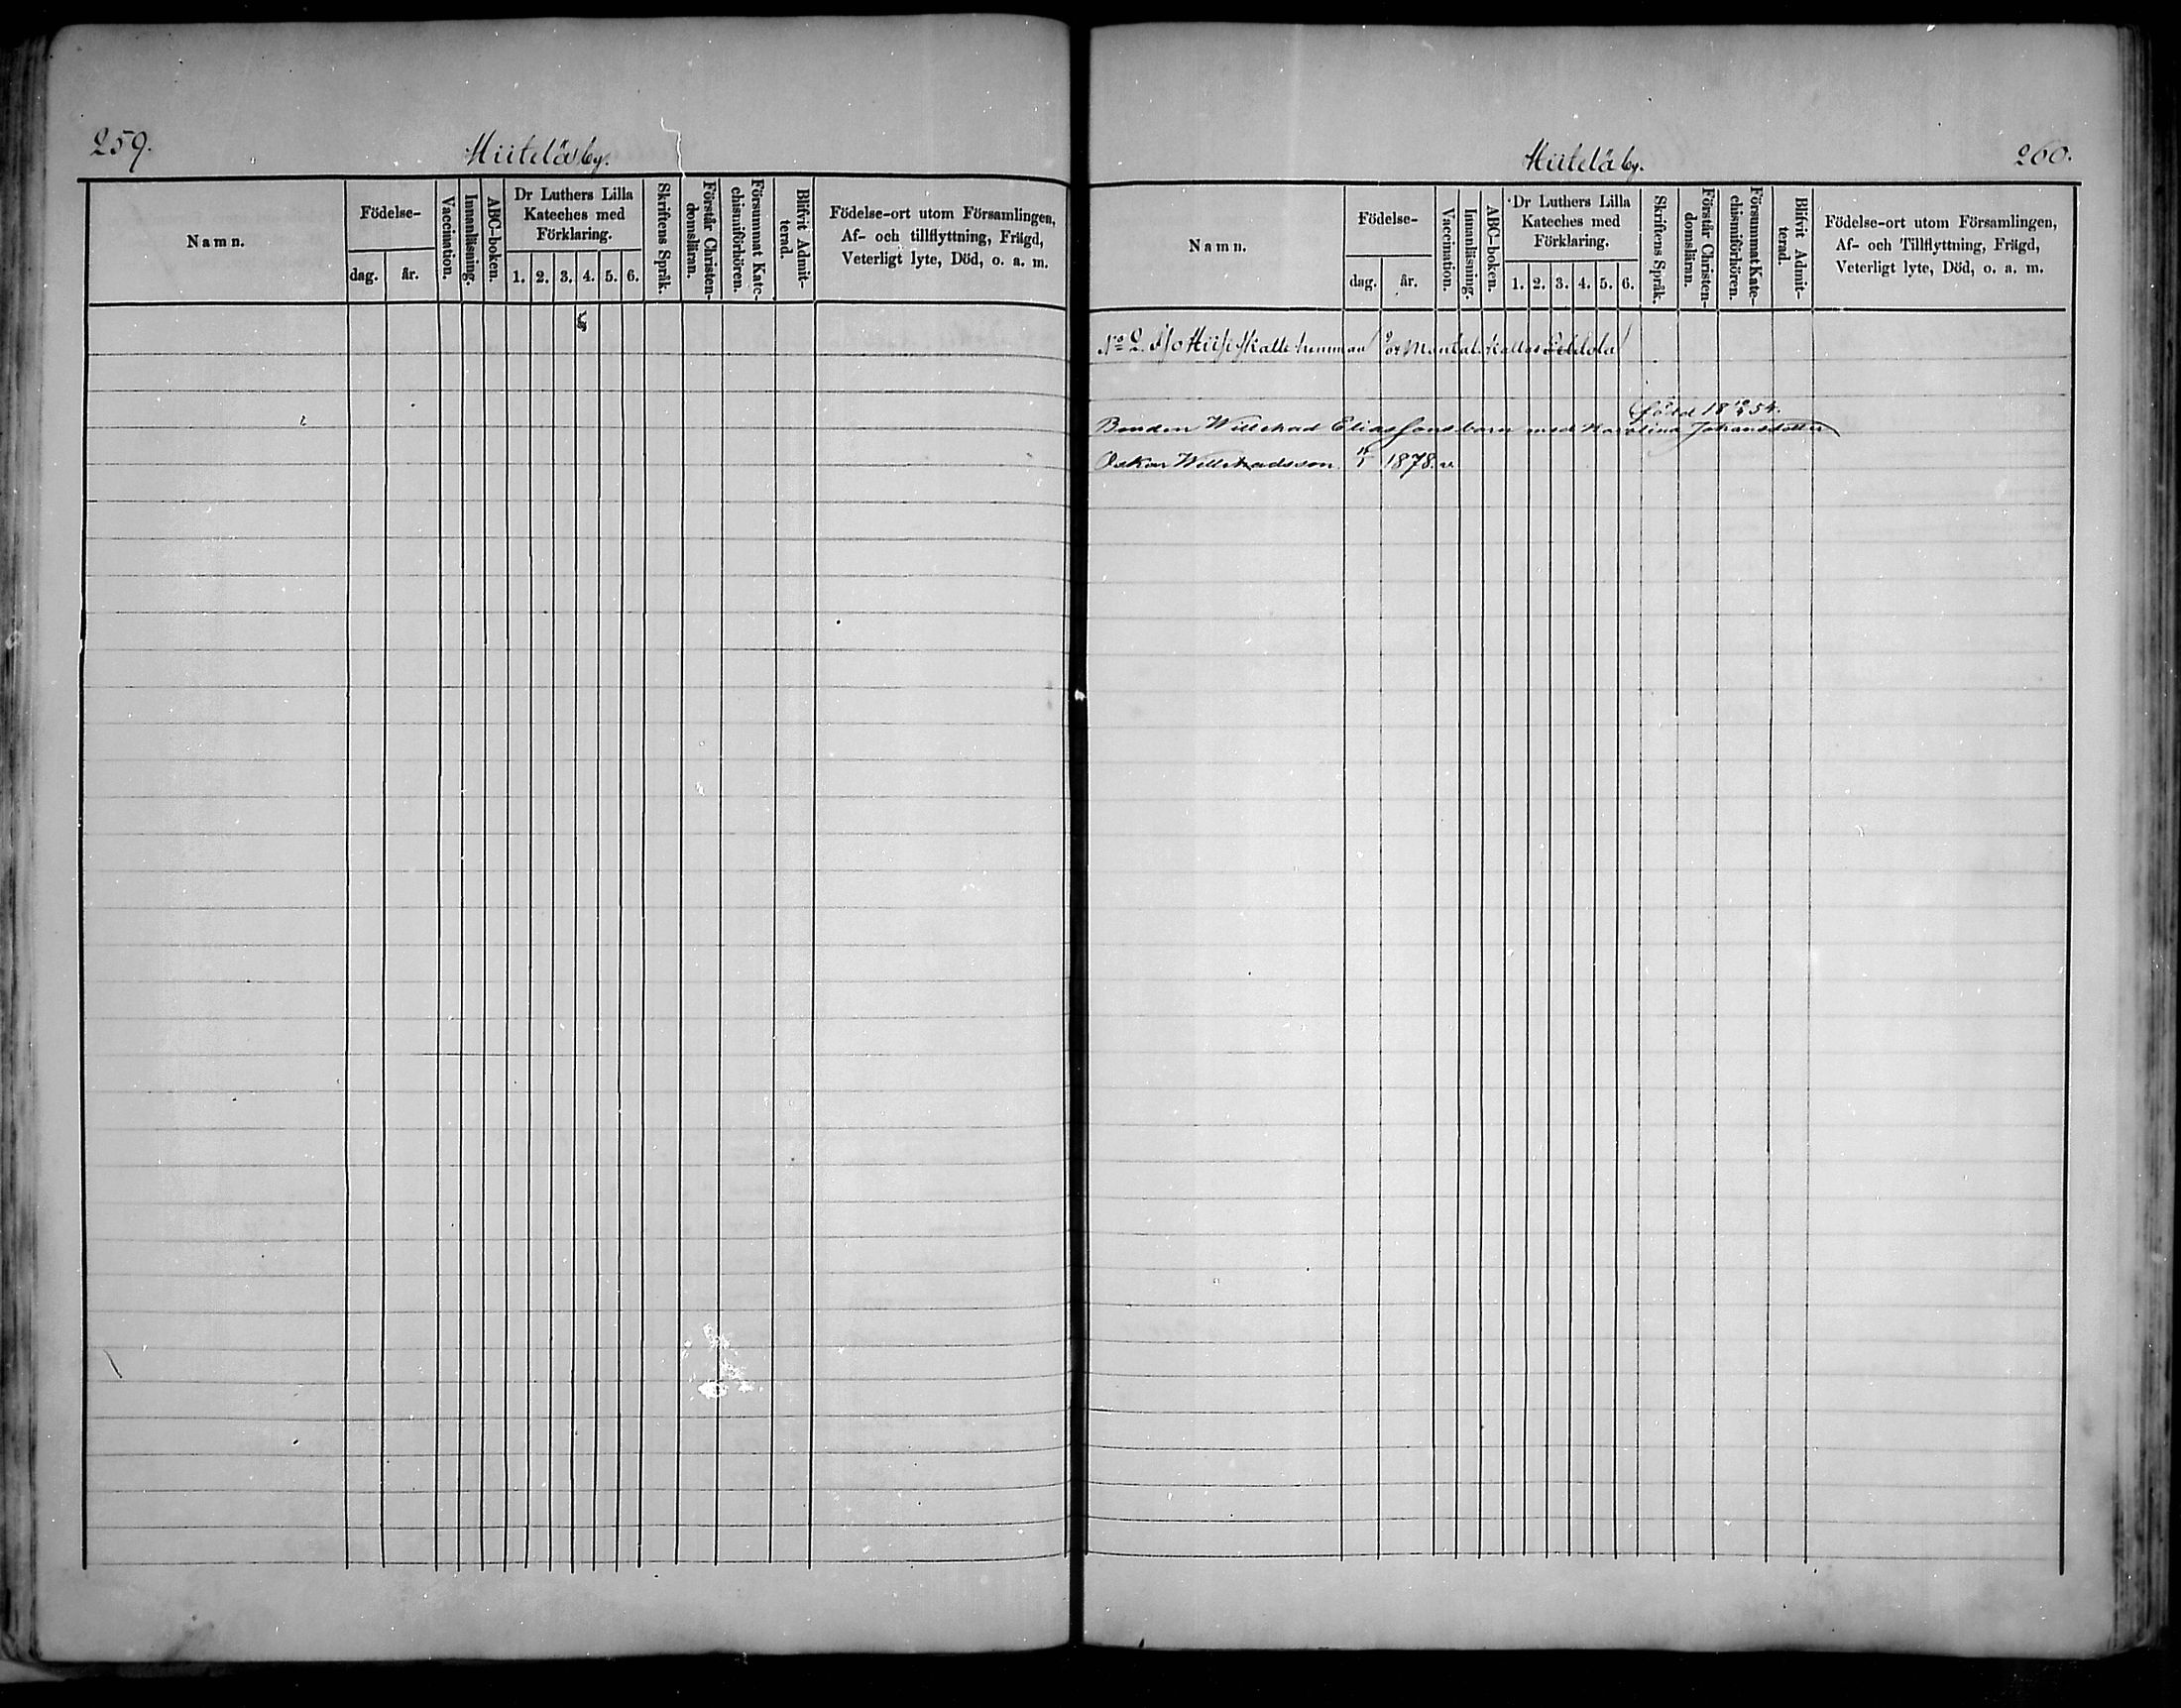 259.
Hiitelä by.
Namn.
Födelse-
dag.
år.
Vaccination.
Innanläsning.
ABC-boken.
Dr Luthers Lilla
Kateches med
Förklaring.
1. 2. 3. 4. 5. 6.
Skriftens Språk.
Förstår Christen-
domsläran.
Försummat Kate-
chismiförhören.
Blifvit Admit-
terad.
Födelse-ort utom Församlingen,
Af- och tillflyttning, Frägd,
Veterligt lyte, Död, o. a. m.
Hiitelä by.
260.
Namn.
Födelse-
dag.
år.
Vaccination.
Innanläsning.
ABC-boken.
Dr Luthers Lilla
Kateches med
Förklaring.
1. 2. 3. 4. 5. 6.
Skriftens Språk.
Förstår Christen-
domsläran.
Försummat Kate-
chismiförhören.
Blifvit Admit-
terad.
Födelse-ort utom Församlingen,
Af- och Tillflyttning, Frägd,
Veterligt lyte, Död, o. a. m.
No 2. Iso Skatte hemman Mantal. kallas
född 18 54.
Bonden Willehad Eliassons barn med Karolina Johansdotter
Oskar Willehadsson 1878. v.